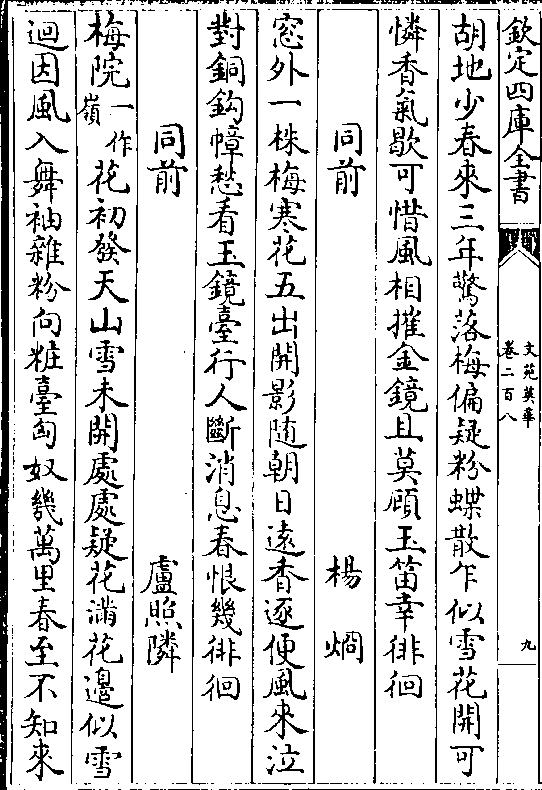 欽定四庫全書
文苑英華
卷二百八
九
胡地少春來三年驚落梅偏疑粉蝶散乍似雪花開可
憐香氣歇可惜風相摧金鏡且莫顧玉笛幸徘徊
同前 楊烱
窓外一株梅寒花五出開影随朝日逺香逐便風來泣
對銅鈎幛愁看玉鏡臺行人斷消息春恨幾徘徊
同前 盧照隣
梅院一作嶺花初發天山雪未開處處疑花滿花邉似雪
迴因風入舞袖雜粉向粧臺匈奴幾萬里春至不知來